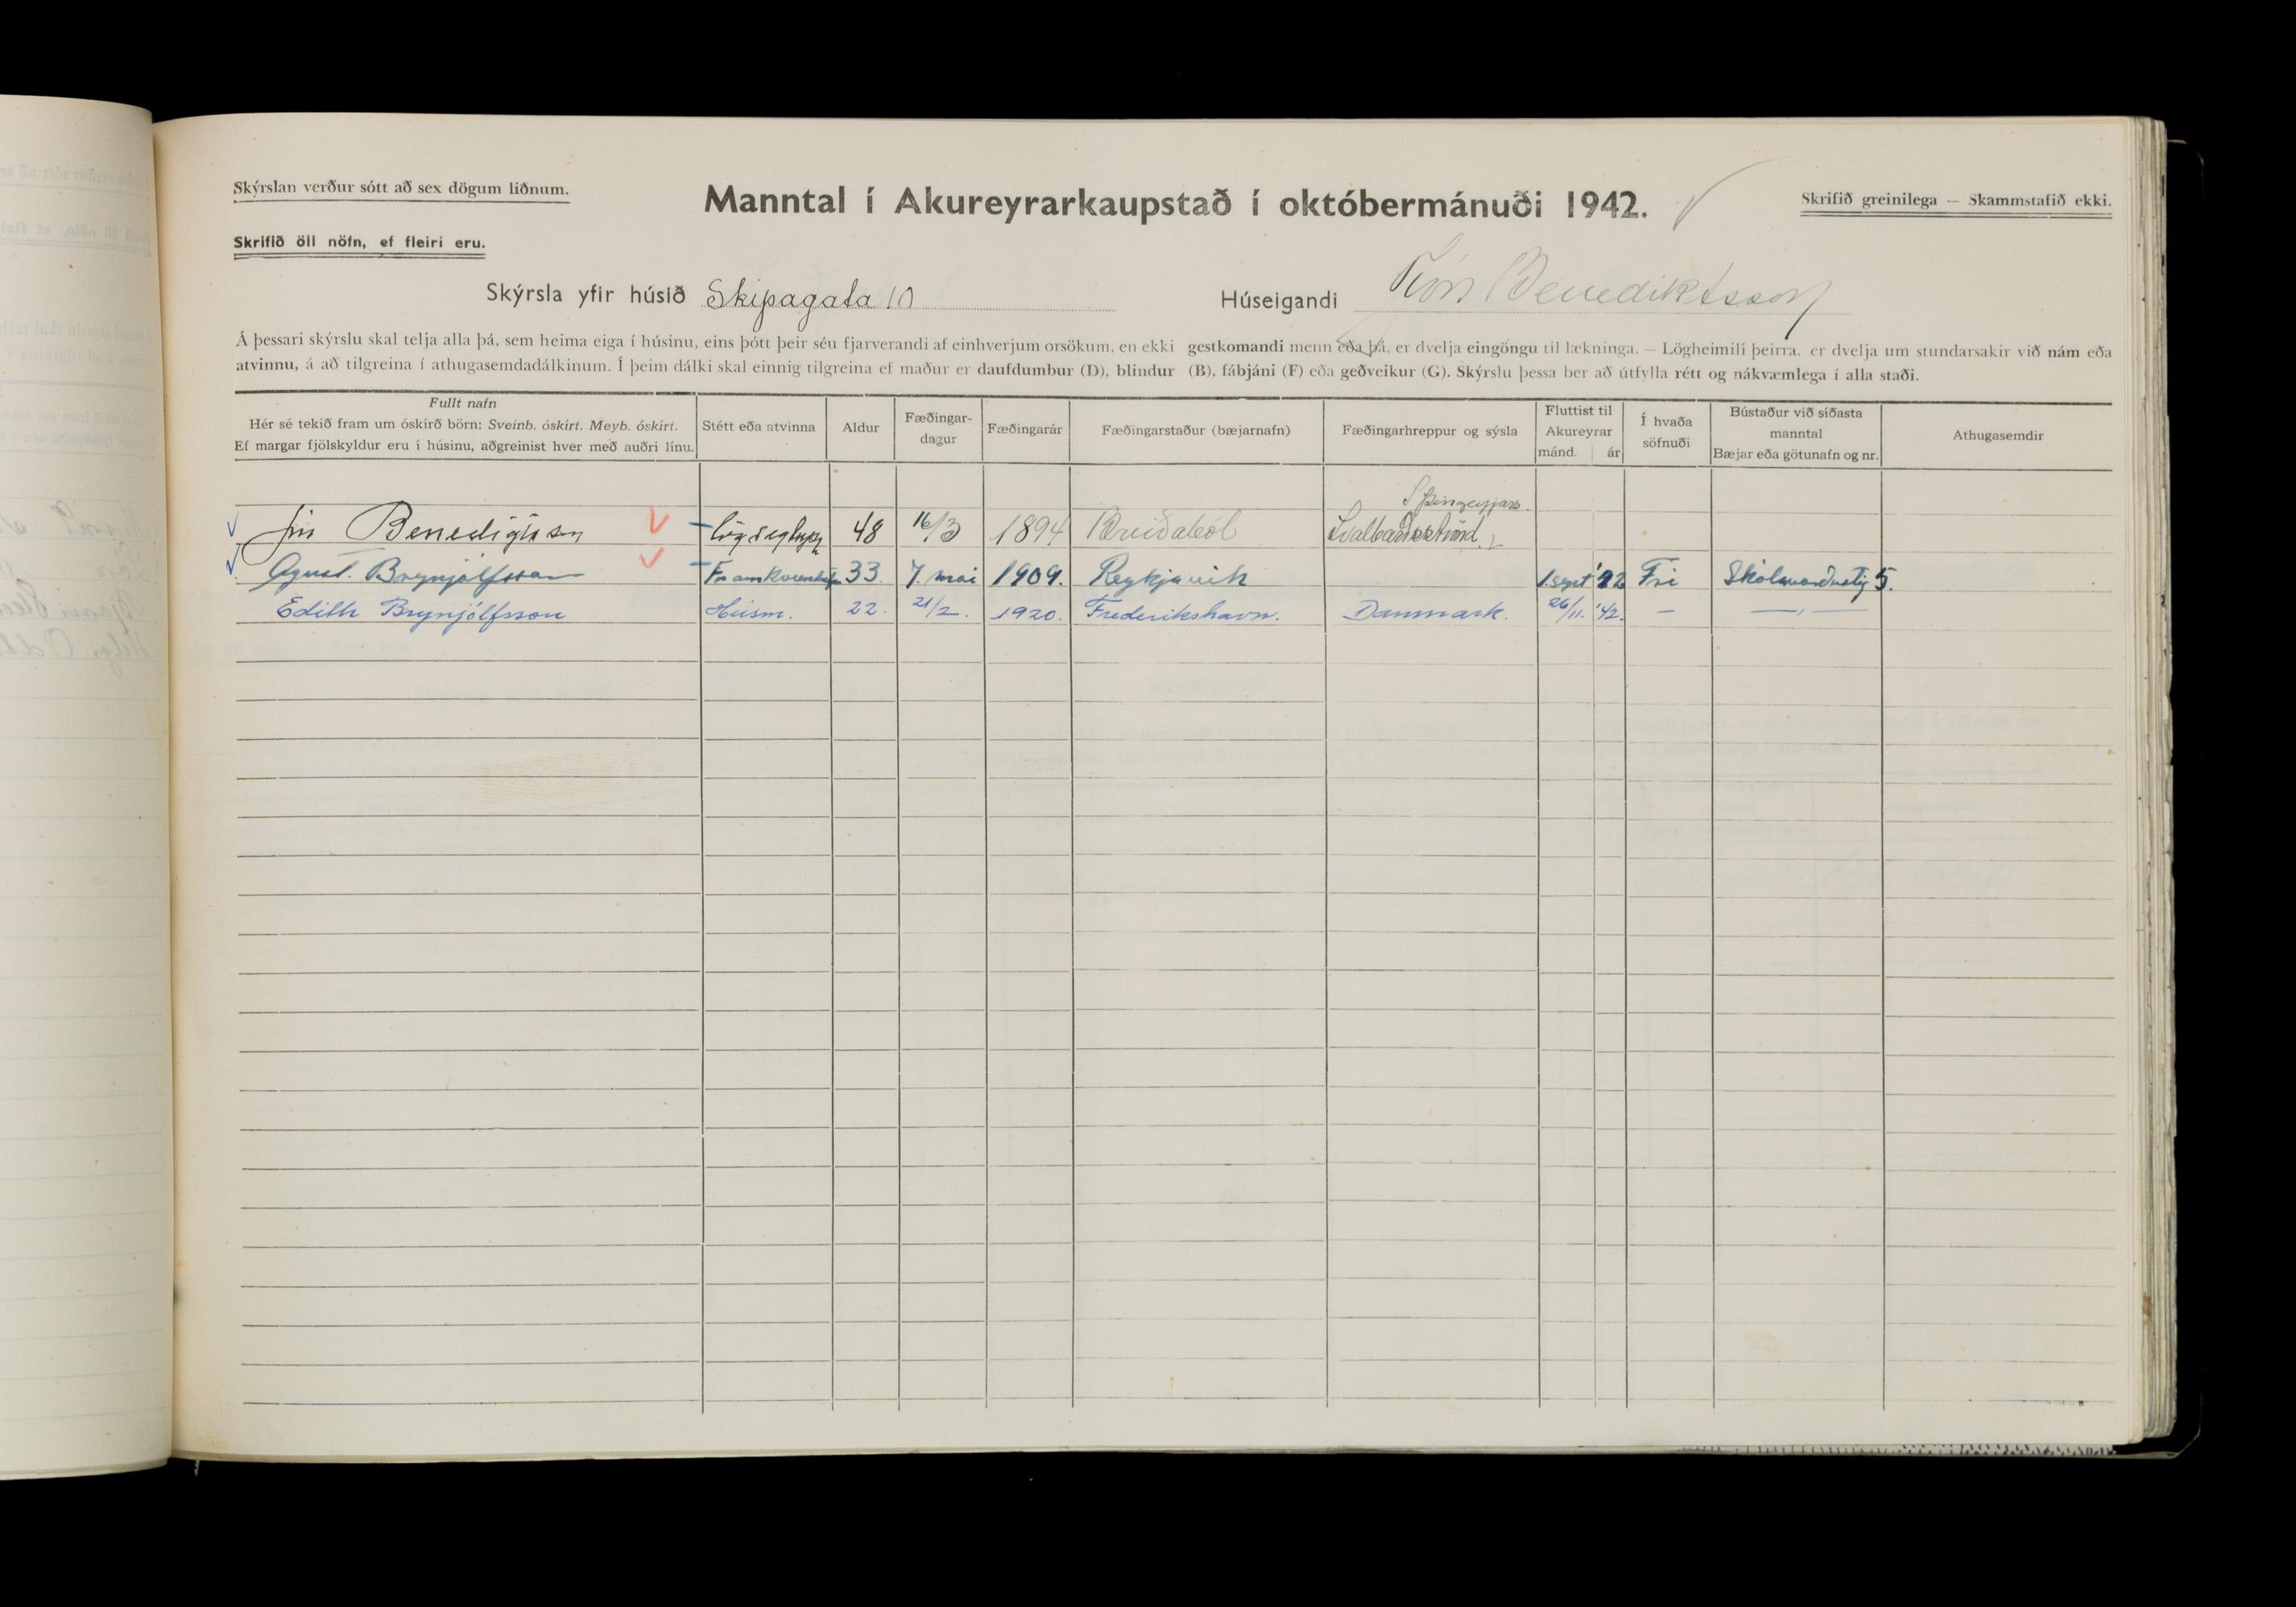 Skýrslan verður sótt að sex dögum liðnum.
Manntal í Akureyrarkaupstað í októbermánuði 1942.
Skrifið greinilega — Skammstafið ekki.
Skrifið öll nöfn, ef fleiri eru.
Skýrsla yfir húsið Skipagata 10 Húseigandi Jón Benediktsson
Á þessari skýrslu skal telja alla þá, sem heima eiga í húsinu, eins þótt þeir séu fjarverandi af einhverjum orsökum, en ekki gestkomandi menn eða þá, er dvelja eingöngu til lækninga. — Lögheimili þeirra, er dvelja um stundarsakir við nám eða
atvinnu, á að tilgreina í athugasemdadálkinum. Í þeim dálki skal einnig tilgreina ef maður er daufdumbur (D), blindur (B), fábjáni (F) eða geðveikur (G). Skýrslu þessa ber að útfylla rétt og nákvæmlega í alla staði.
Fullt nafn
Hér sé tekið fram um óskírð börn: Sveinb. óskírt. Meyb. óskírt.
Ef margar fjölskyldur eru í húsinu, aðgreinist hver með auðri línu.
Stétt eða atvinna
Aldur
Fæðingar-
dagur
Fæðingarár
Fæðingarstaður (bæjarnafn)
Fæðingarhreppur og sýsla
Fluttist til
Akureyrar
mánd. ár
Í hvaða
söfnuði
Bústaður við síðasta
manntal
Bæjar eða götunafn og nr.
Athugasemdir
S Þingeyjars.
Jón Benedigtsson 48 16/3 1894 Breiðaból Svalbarðsströnd
Agust. Brynjólfsson 33. 7. mai 1909. Reykjavik 1. sept Fri Skólavorðustig 5.
Edith Brynjólfsson Húsm. 22. 21/2. 1920. Frederikshavn. Danmark. 26/11. '42. — —„—